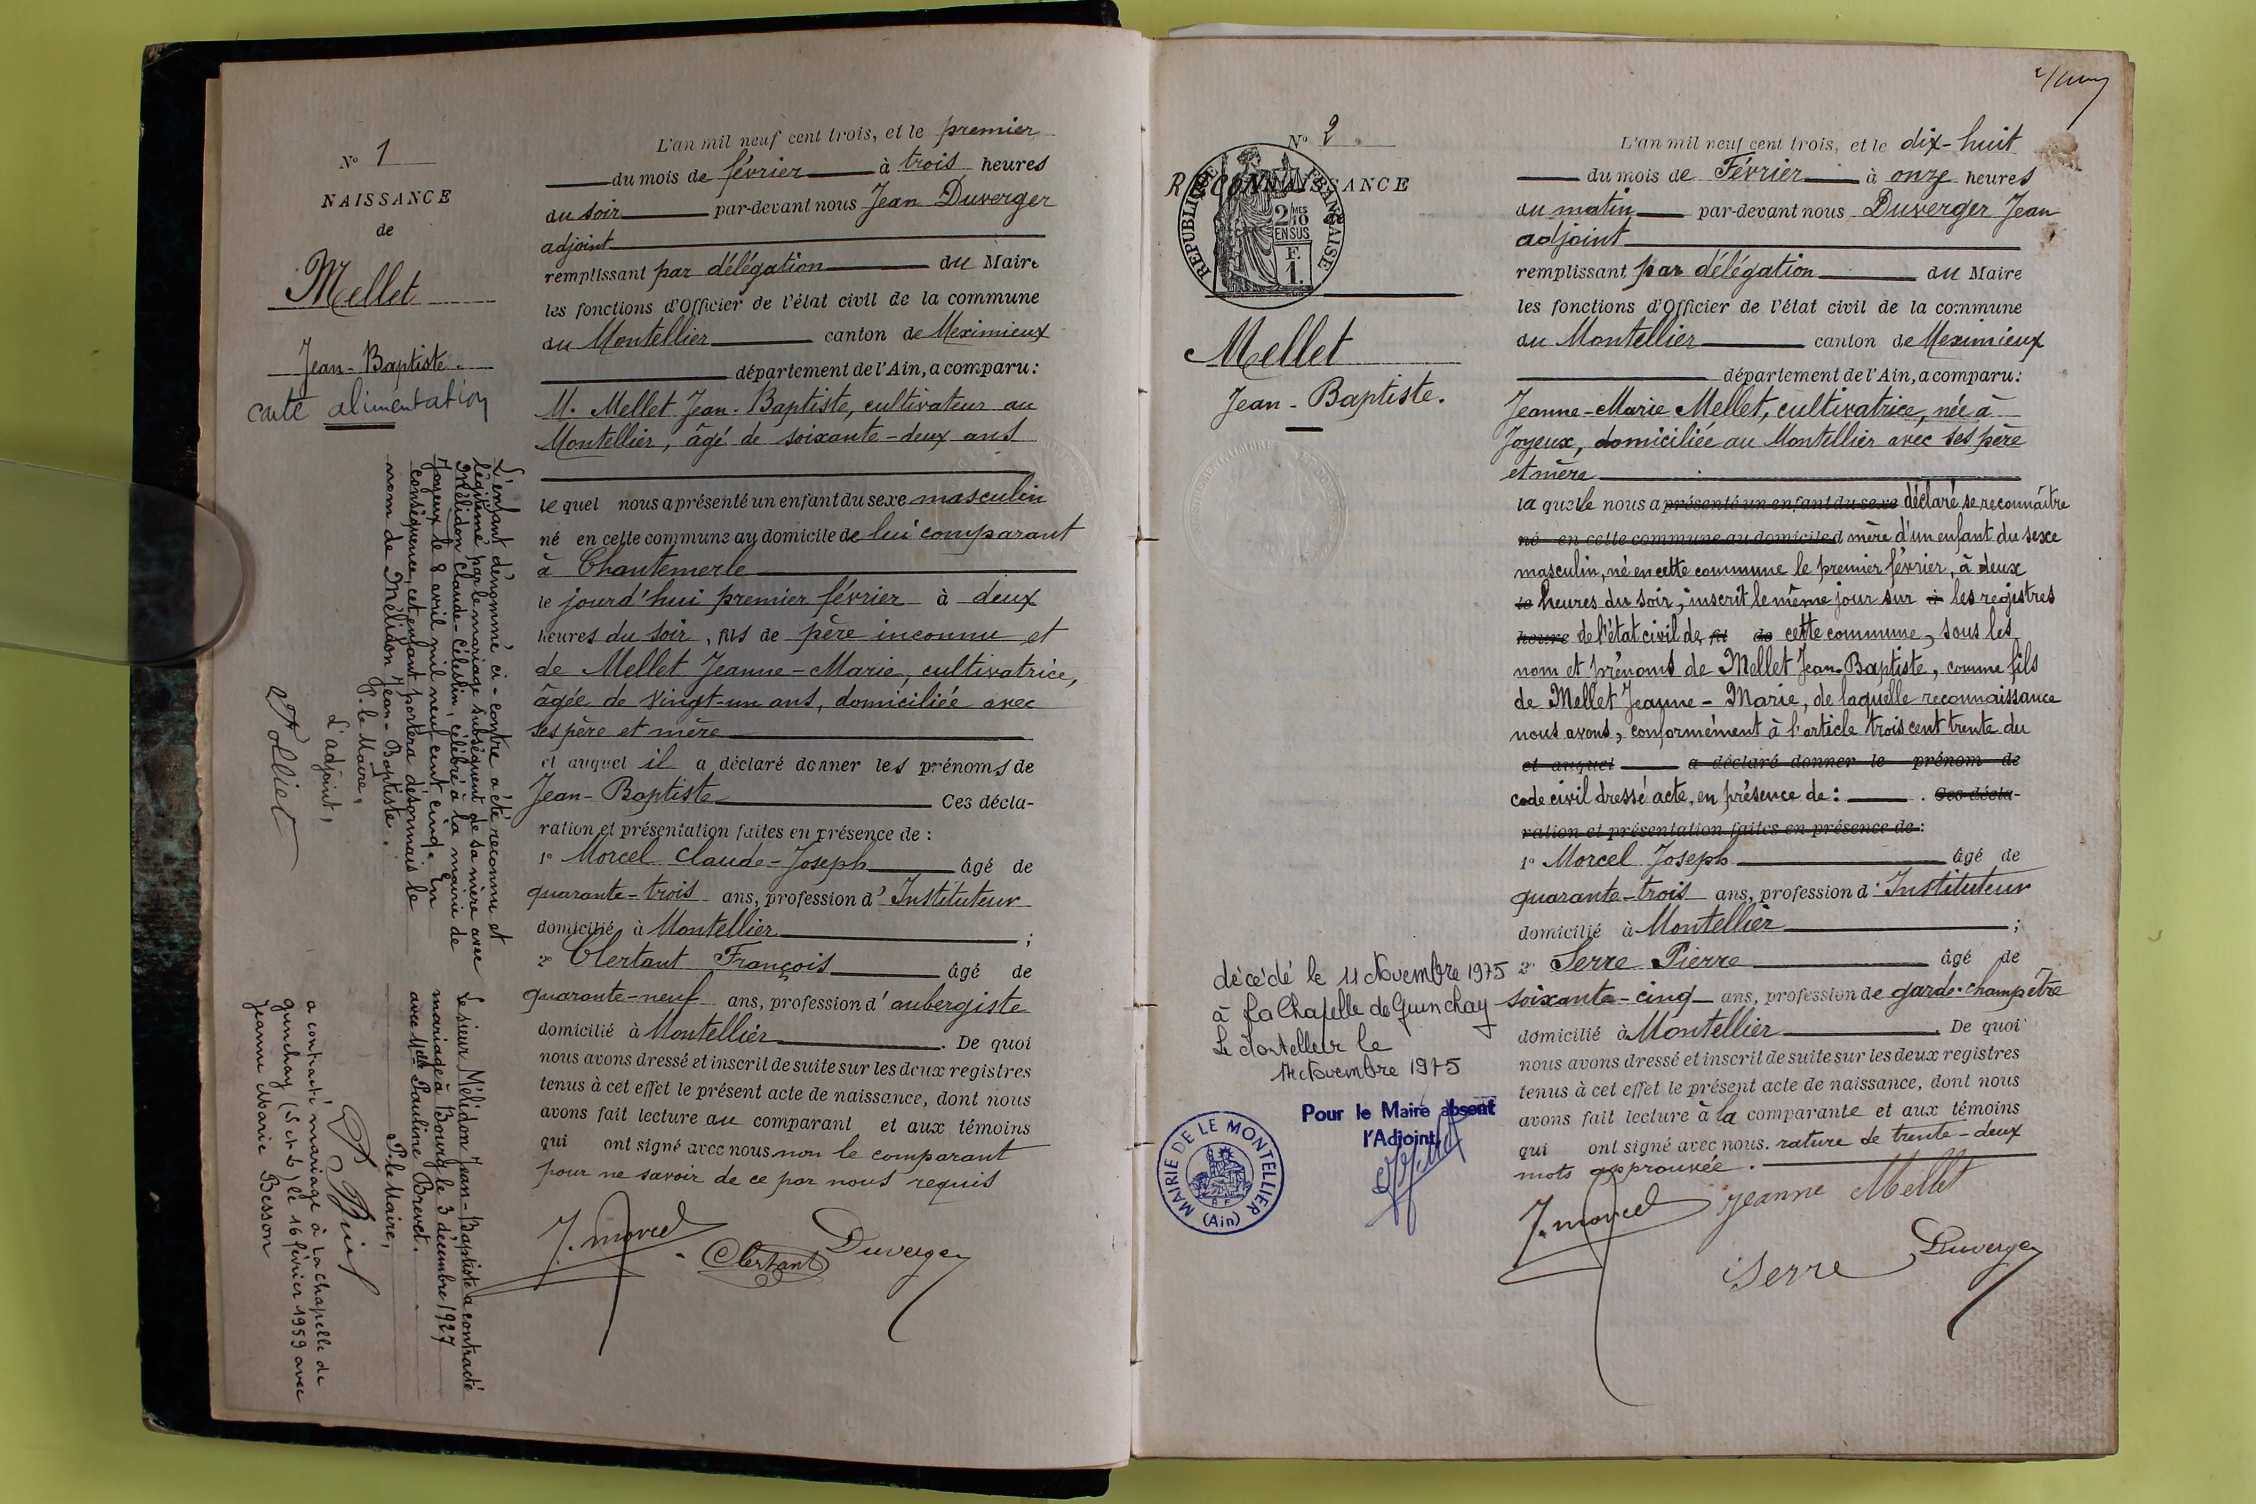 N° 1
NAISSANCE
de
Mellet
Jean-Baptiste.
carte alimentation
L'enfant dénommé ci-contre a été reconnu et
légitimé par le mariage subséquent de sa mère avec
Mélidon Claude-Célestin, célébré à la mairie de
Joyeux le 8 avril mil neuf cent cinq. En
conséquence, cet enfant portera désormais le
nom de Mélidon Jean-Baptiste.
P. le Maire,
L'adjoint,
Folliet
Le sieur Mélidon Jean-Baptiste a contracté
mariage à Bourg le 3 décembre 1927
avec Mlle Pauline Brevet.
P. le Maire,
a contracté mariage à La Chapelle de
Guinchay (S et L) le 16 février 1959 avec
Jeanne Marie Besson
L'an mil neuf cent trois, et le premier
du mois de février à trois heures
du soir par-devant nous Jean Duverger
adjoint
remplissant par délégation du Maire
les fonctions d'Officier de l'état civil de la commune
du Montellier canton de Meximieux
département de l'Ain, a comparu:
M. Mellet Jean-Baptiste, cultivateur au
Montellier, âgé de soixante-deux ans
le quel nous a présenté un enfant du sexe masculin
né en cette commune au domicile de lui comparant
à Chantemerle
le jourd'hui premier février à deux
heures du soir, fils de père inconnu et
de Mellet Jeanne-Marie, cultivatrice,
âgée de vingt-un ans, domiciliée avec
ses père et mère
et auquel il a déclaré donner les prénoms de
Jean-Baptiste Ces décla-
ration et présentation faites en présence de :
1° Morcel Claude-Joseph âgé de
quarante-trois ans, profession d'Instituteur
domicilié à Montellier ;
2° Clertant François âgé de
quarante-neuf ans, profession d'aubergiste
domicilié à Montellier . De quoi
nous avons dressé et inscrit de suite sur les deux registres
tenus à cet effet le présent acte de naissance, dont nous
avons fait lecture au comparant et aux témoins
qui ont signé avec nous non le comparant
pour ne savoir de ce par nous requis
J. Morcel Clertant Duverger
N° 2
RECONNAISSANCE
RÉPUBLIQUE FRANÇAISE
2/10 MES
EN SUS
F.
1.
Mellet
Jean-Baptiste.
décédé le 11 Novembre 1975
à La Chapelle de Guinchay
Le Montellier le
14 Novembre 1975
Pour le Maire absent
l'Adjoint,
MAIRIE DE LE MONTELLIER
R F
(Ain)
L'an mil neuf cent trois, et le dix-huit
du mois de Février à onze heures
du matin par-devant nous Duverger Jean
adjoint
remplissant par délégation du Maire
les fonctions d'Officier de l'état civil de la commune
du Montellier canton de Meximieux
département de l'Ain, a comparu:
Jeanne-Marie Mellet, cultivatrice, née à
Joyeux, domiciliée au Montellier avec ses père
et mère
la quelle nous a présenté un enfant du sexe déclaré se reconnaître
né en cette commune au domicile d mère d'un enfant du sexe
masculin, né en cette commune le premier février, à deux
le heures du soir, inscrit le même jour sur à les registres
heure de l'état civil de fil de cette commune, sous les
nom et prénoms de Mellet Jean-Baptiste, comme fils
de Mellet Jeanne-Marie, de laquelle reconnaissance
nous avons, conformément à l'article trois cent trente du
et auquel a déclaré donner le prénom de
code civil dressé acte, en présence de : . Ces décla-
ration et présentation faites en présence de :
1° Morcel Joseph âgé de
quarante-trois ans, profession d'Instituteur
domicilié à Montellier ;
2° Serre Pierre âgé de
soixante-cinq ans, profession de garde-champêtre
domicilié à Montellier . De quoi
nous avons dressé et inscrit de suite sur les deux registres
tenus à cet effet le présent acte de naissance, dont nous
avons fait lecture à la comparante et aux témoins
qui ont signé avec nous. rature de trente-deux
mots approuvée.
J. Morcel Jeanne Mellet
Serre Duverger